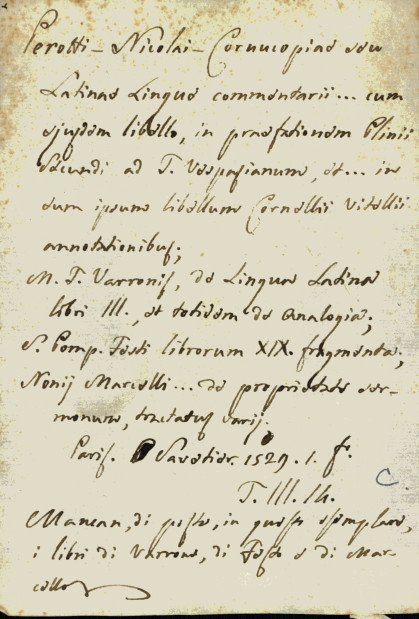 Perotti - Nicolai - Cornucopiae seu
Latinae Linguae commentarii... cum
ejusdem libello, in praefationem Plinii
Secundi ad T. Vespasianum, et... in
eum ipsum libellum Cornelii Vitellii
annotationibus;
M. T. Varronis, de Lingua Latina
libri III., et totidem de Analogia;
S. Pomp. Festi librorum XIX. fragmenta;
Nonij Marcelli... de proprietate ser-
monum, tractatus varij.
Paris. Savetier. 1529. 1. f.
T. III.
C.
Mancan, di posto, in questo esemplare,
i libri di Varrone, di Festo e di Mar-
cello